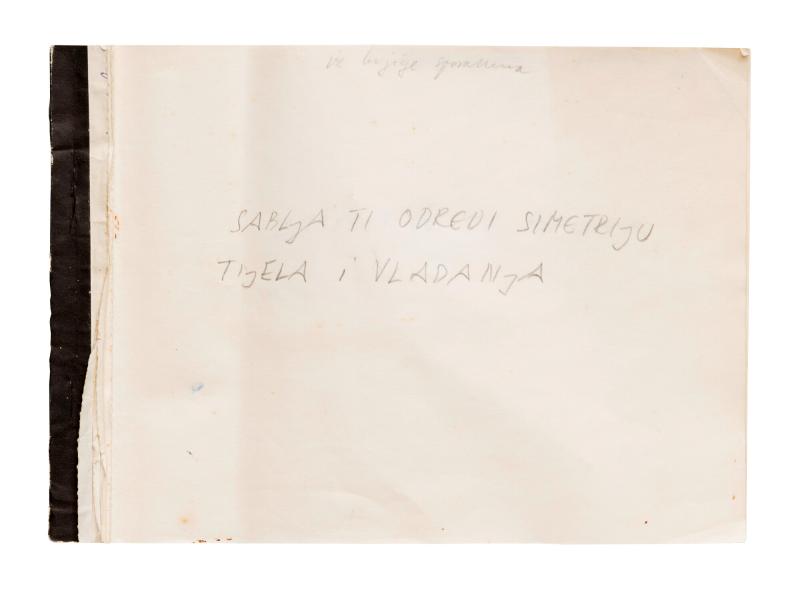 iz knjige spomena
SABLjA TI ODREDI SIMETRIjU
TIjELA i VLADANjA